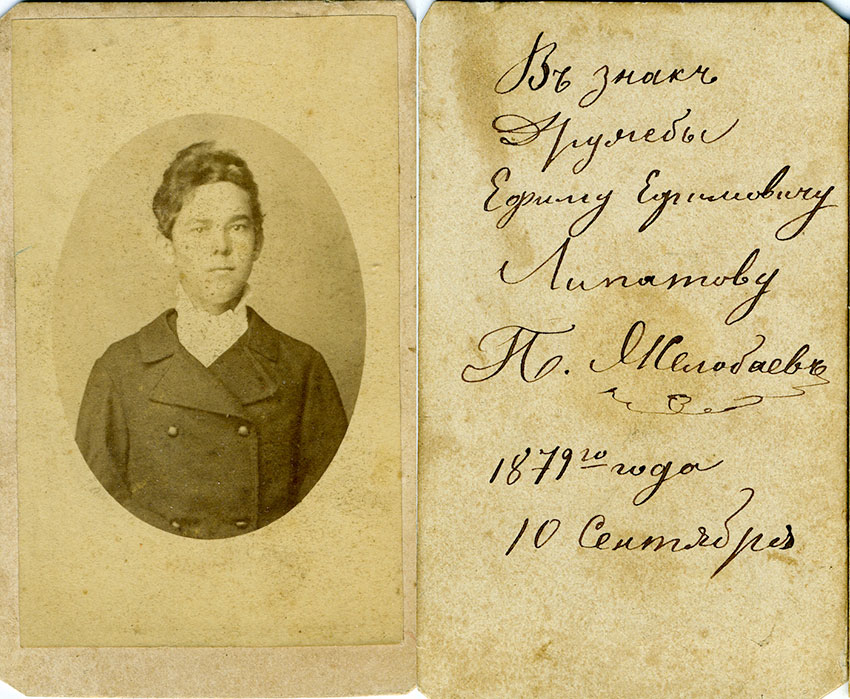 Въ знакъ
Дружебы
Ефиму Ефимовичу
Липатову
П. Желобаевъ
1879го года
10 Сентября